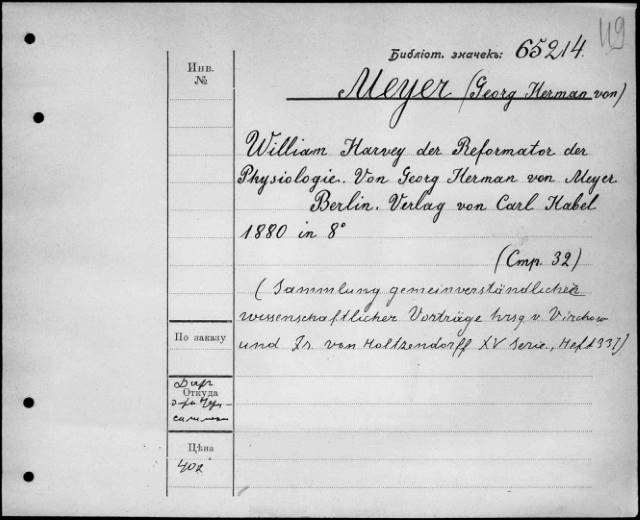 49
Библіот. значекъ: 65214.
Инв.
№
Meyer (Georg Herman von)
William Harvey der Reformator der
Physiologie. Von Georg Herman von Meyer
Berlin. Verlag von Carl Habel
1880 in 8°
(Стр. 32)
(Sammlung gemeinverständlicher
wissenschaftlicher Vorträge hrsg v. Virchow
und Fr. von Holtzendorff XV Serie, Heft 337)
По заказу
Даръ
Откуда
Цѣна
40к